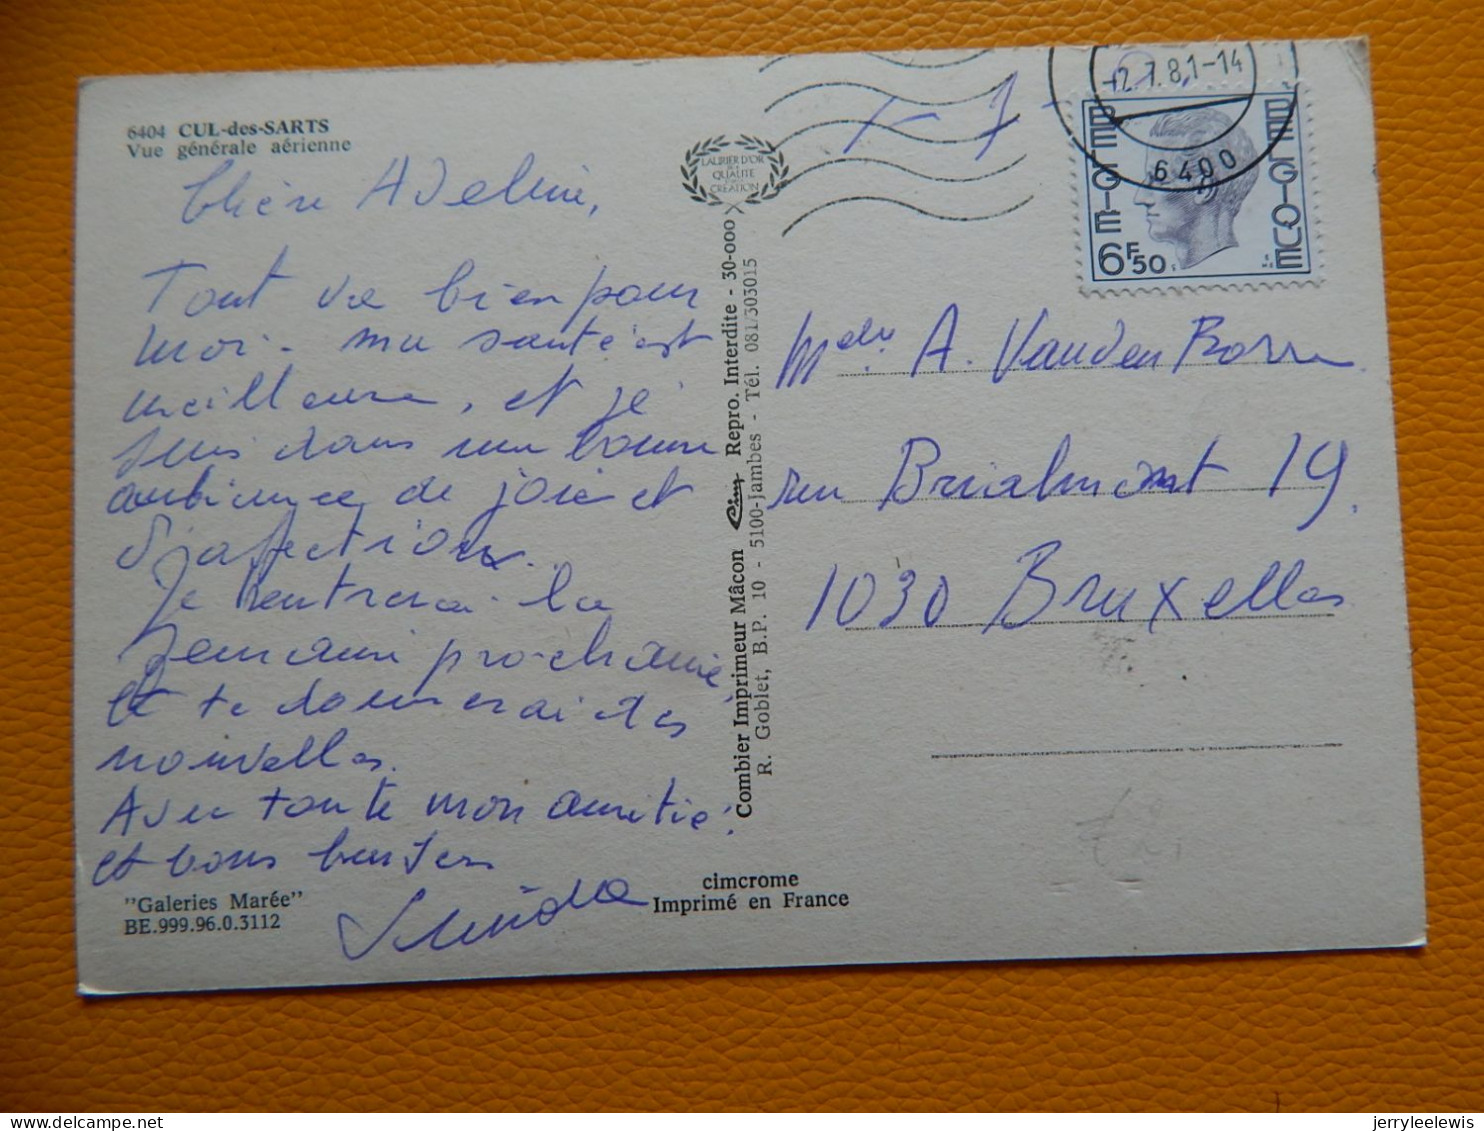 6404 CUL-des-SARTS
Vue générale aérienne
Chère Adeline,
Tout va bien pour
moi - ma santé est
meilleure, et je
suis dans une bonne
ambiance de joie et
d'affection.
Je rentrerai la
semaine prochaine,
et te donnerai des
nouvelles.
Avec toute mon amitié,
et bons baisers
"Galeries Marée"
BE.999.96.0.3112
LAURIER D'OR
DE LA
QUALITÉ
CRÉATION
Combier Imprimeur Mâcon Cim Repro. Interdite - 30-000
R. Goblet, B.P. 10 - 5100-Jambes - Tél. 081/303015
cimcrome
Imprimé en France
-2.7.81-14
6400
BELGIE
BELGIQUE
6F50
1-7
A. Vanden
rue Brialmont 19.
1030 Bruxelles
jerryleelewis
delcampe.net